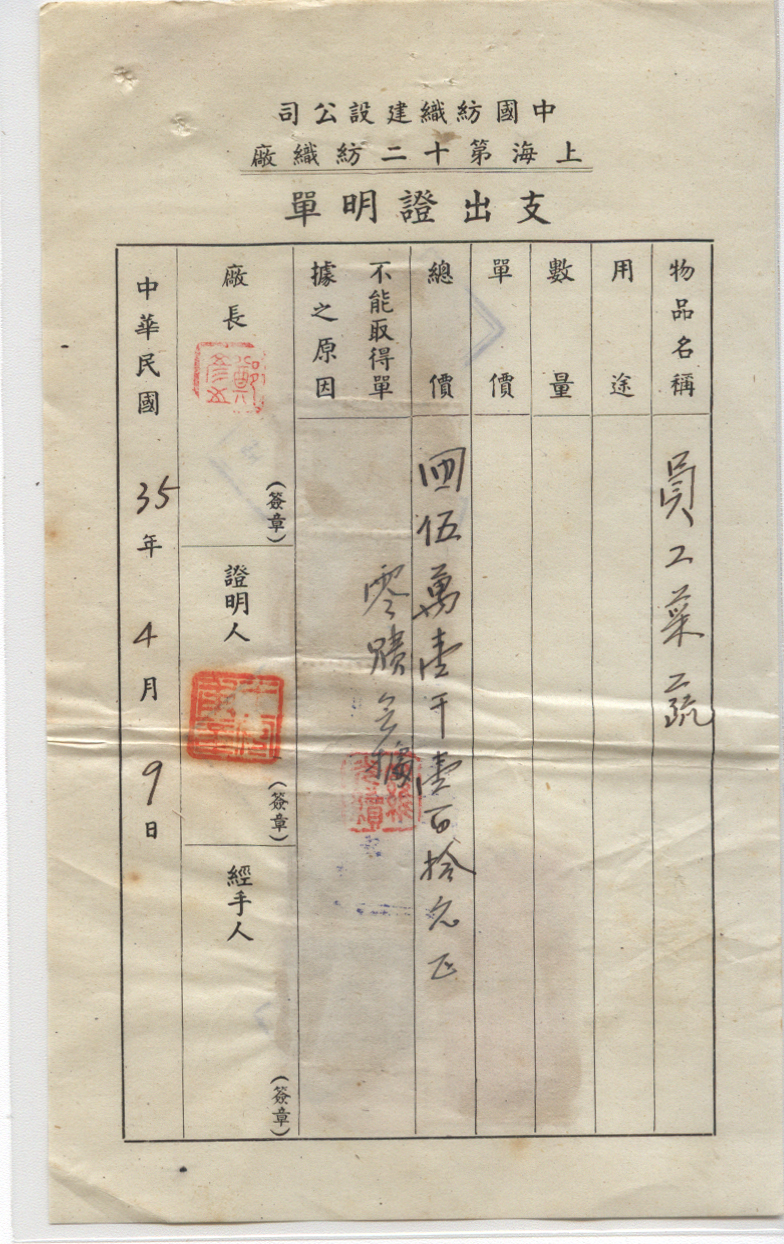 中國紡織建設公司
上海第十二紡織廠
支出證明單
物品名稱
員工菜蔬
用途
數量
單價
總價
國伍萬壹千壹百拾元正
不能取得單
據之原因
零購無據
廠長
(簽章)
證明人
(簽章)
經手人
(簽章)
中華民國35年4月9日